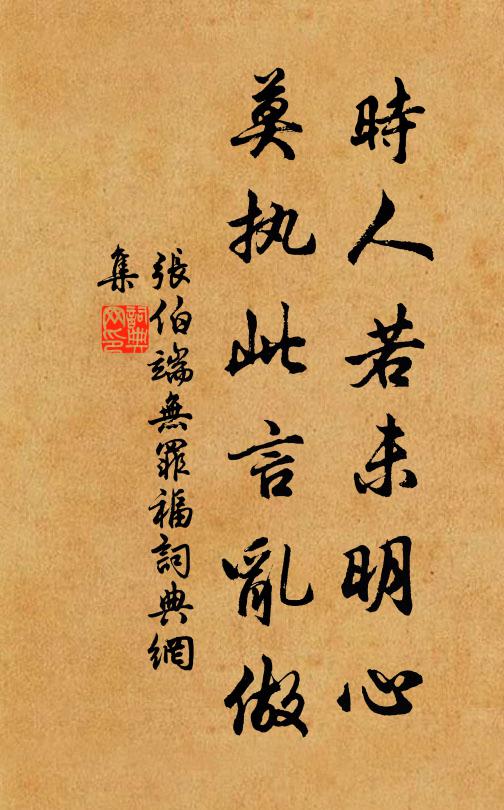 時人若未明心
莫执此言亂做
張伯端無罪福詞典網
集
詞典
网印